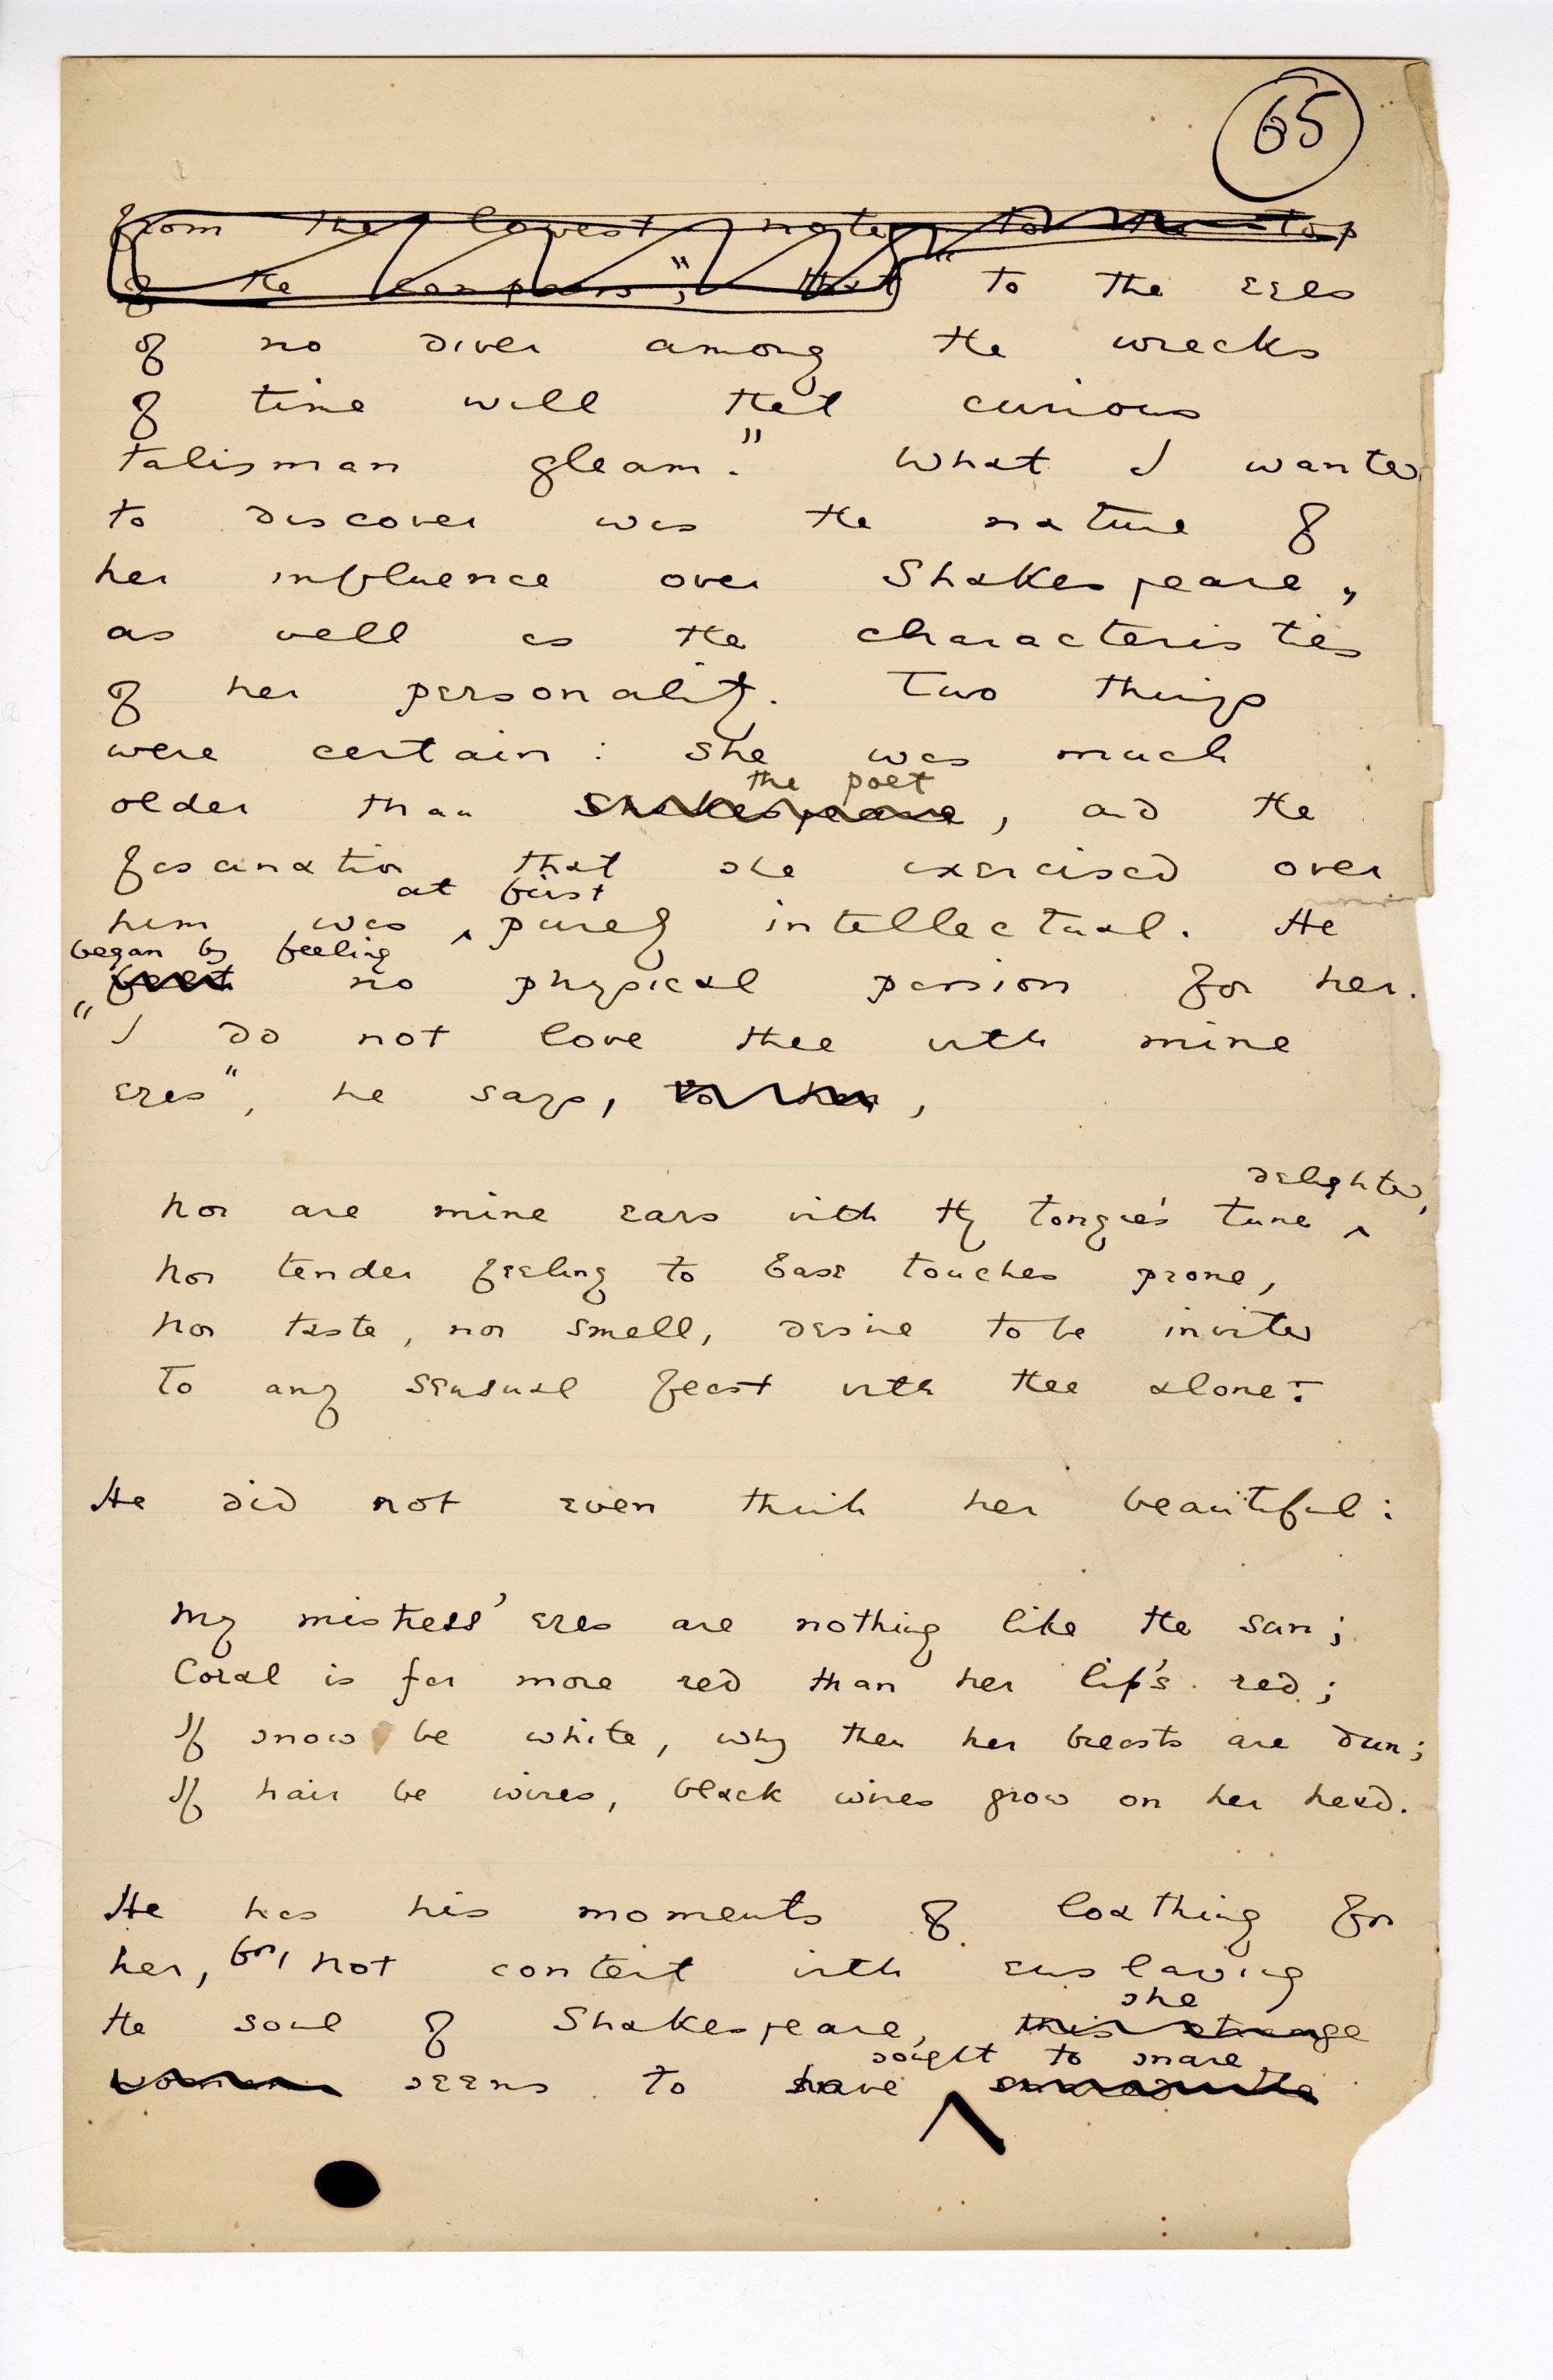 65
from the lowest note to the top
of the compass"; that "to the eyes
of no diver among the wrecks
of time will that curious
talisman gleam." What I wanted
to discover was the nature of
her influence over Shakespeare,
as well as the characteristics
of her personality. Two things
were certain: she was much
the poet
older than Shakespeare, and the
fascination that she exercised over
at first
him was ^ purely intellectual. He
began by feeling
felt no physical passion for her.
"I do not love thee with mine
eyes", he says, to her,
delighted,
Nor are mine ears with thy tongue's tune ^
Nor tender feeling to base touches prone,
Nor taste, nor smell, desire to be invited
To any sensual feast with thee alone:
He did not even think her beautiful:
My mistress' eyes are nothing like the sun;
Coral is far more red than her lip's red;
If snow be white, why then her breasts are dun;
If hair be wires, black wires grow on her head.
He has his moments of loathing for
her, for, not content with enslaving
she
the soul of Shakespeare, this strange
sought to snare
woman seems to have ^